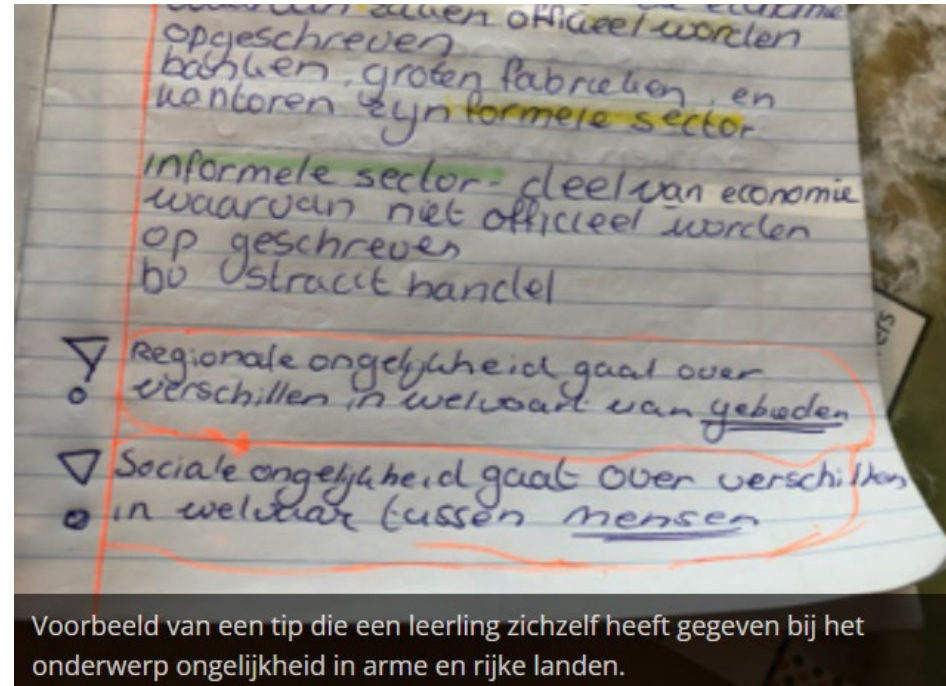 zaken officieel worden
opgeschreven
banken, groten fabrieken, en
kantoren zijn formele sector
informele sector - deel van economie
waarvan niet officieel worden
op geschreven
straat handel
! Regionale ongelijkheid gaat over
verschillen in welvaart van gebieden
! Sociale ongelijkheid gaat over verschillen
in welvaar tussen mensen
Voorbeeld van een tip die een leerling zichzelf heeft gegeven bij het
onderwerp ongelijkheid in arme en rijke landen.